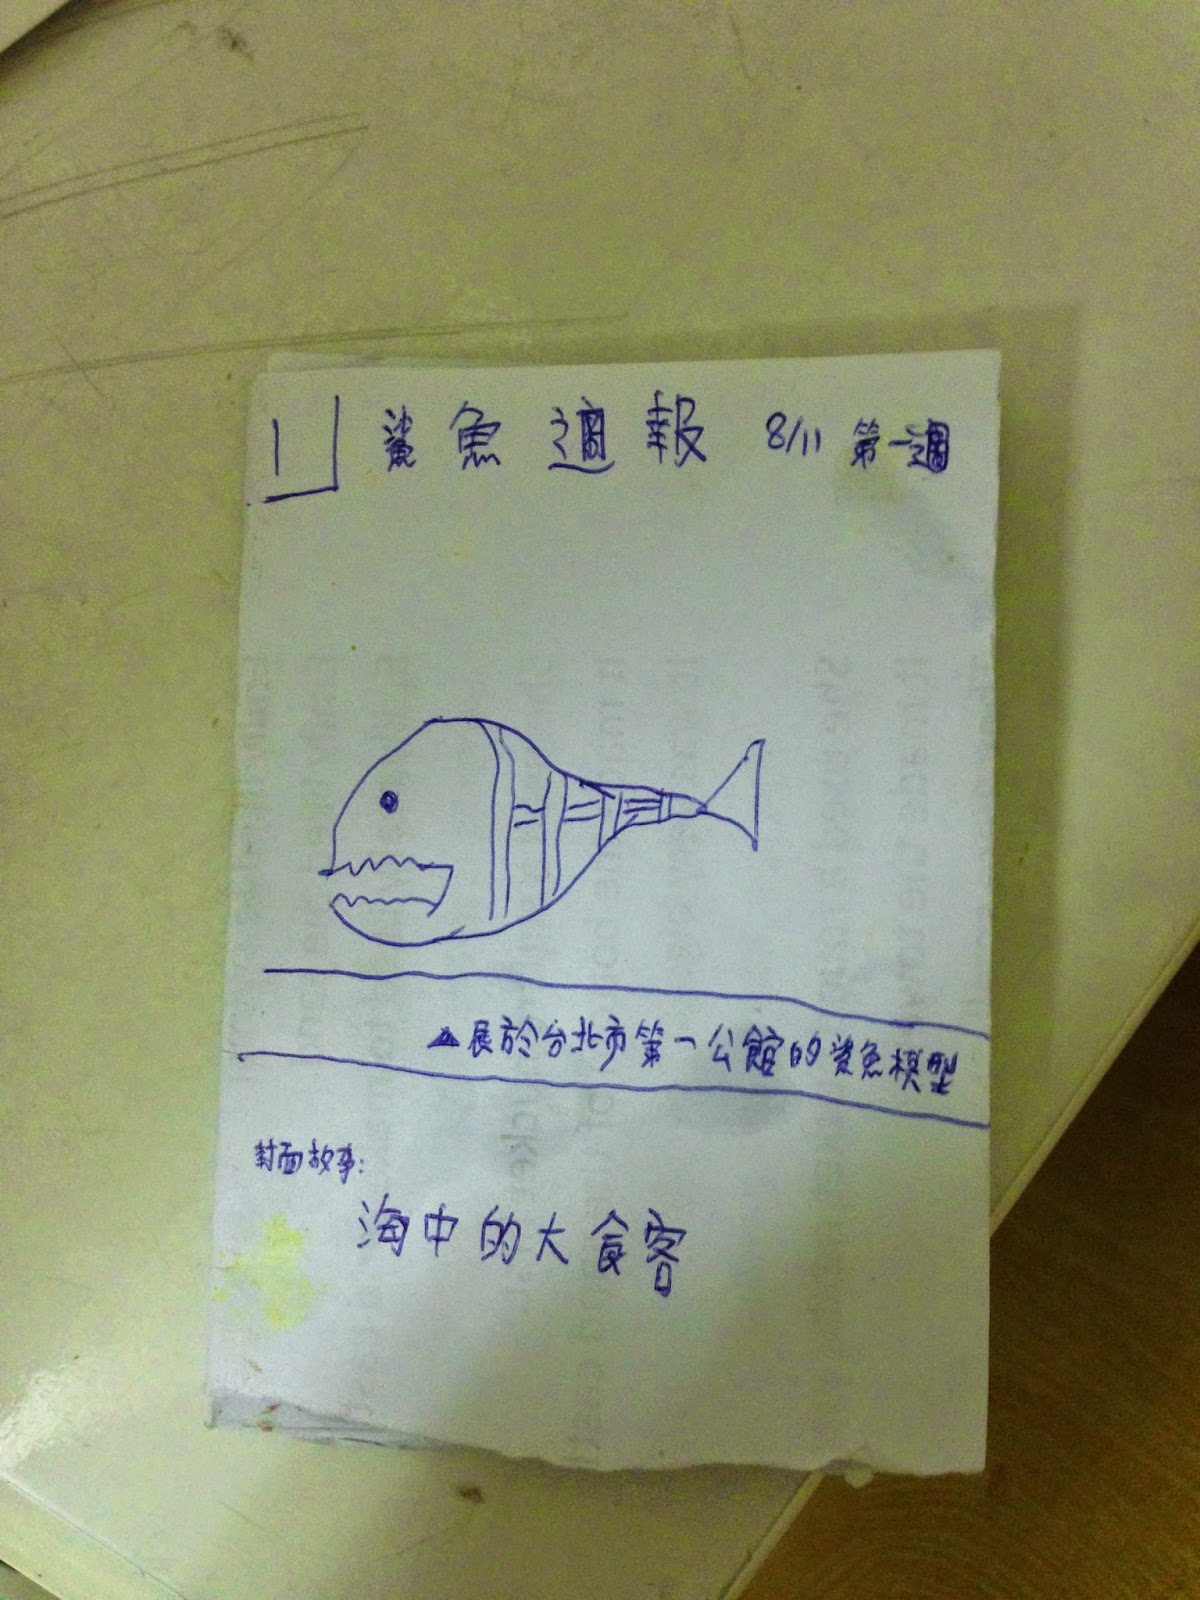 1 鯊魚週報 8/11 第一週
▲展於台北市第一公館的鯊魚模型
封面故事:
海中的大食客